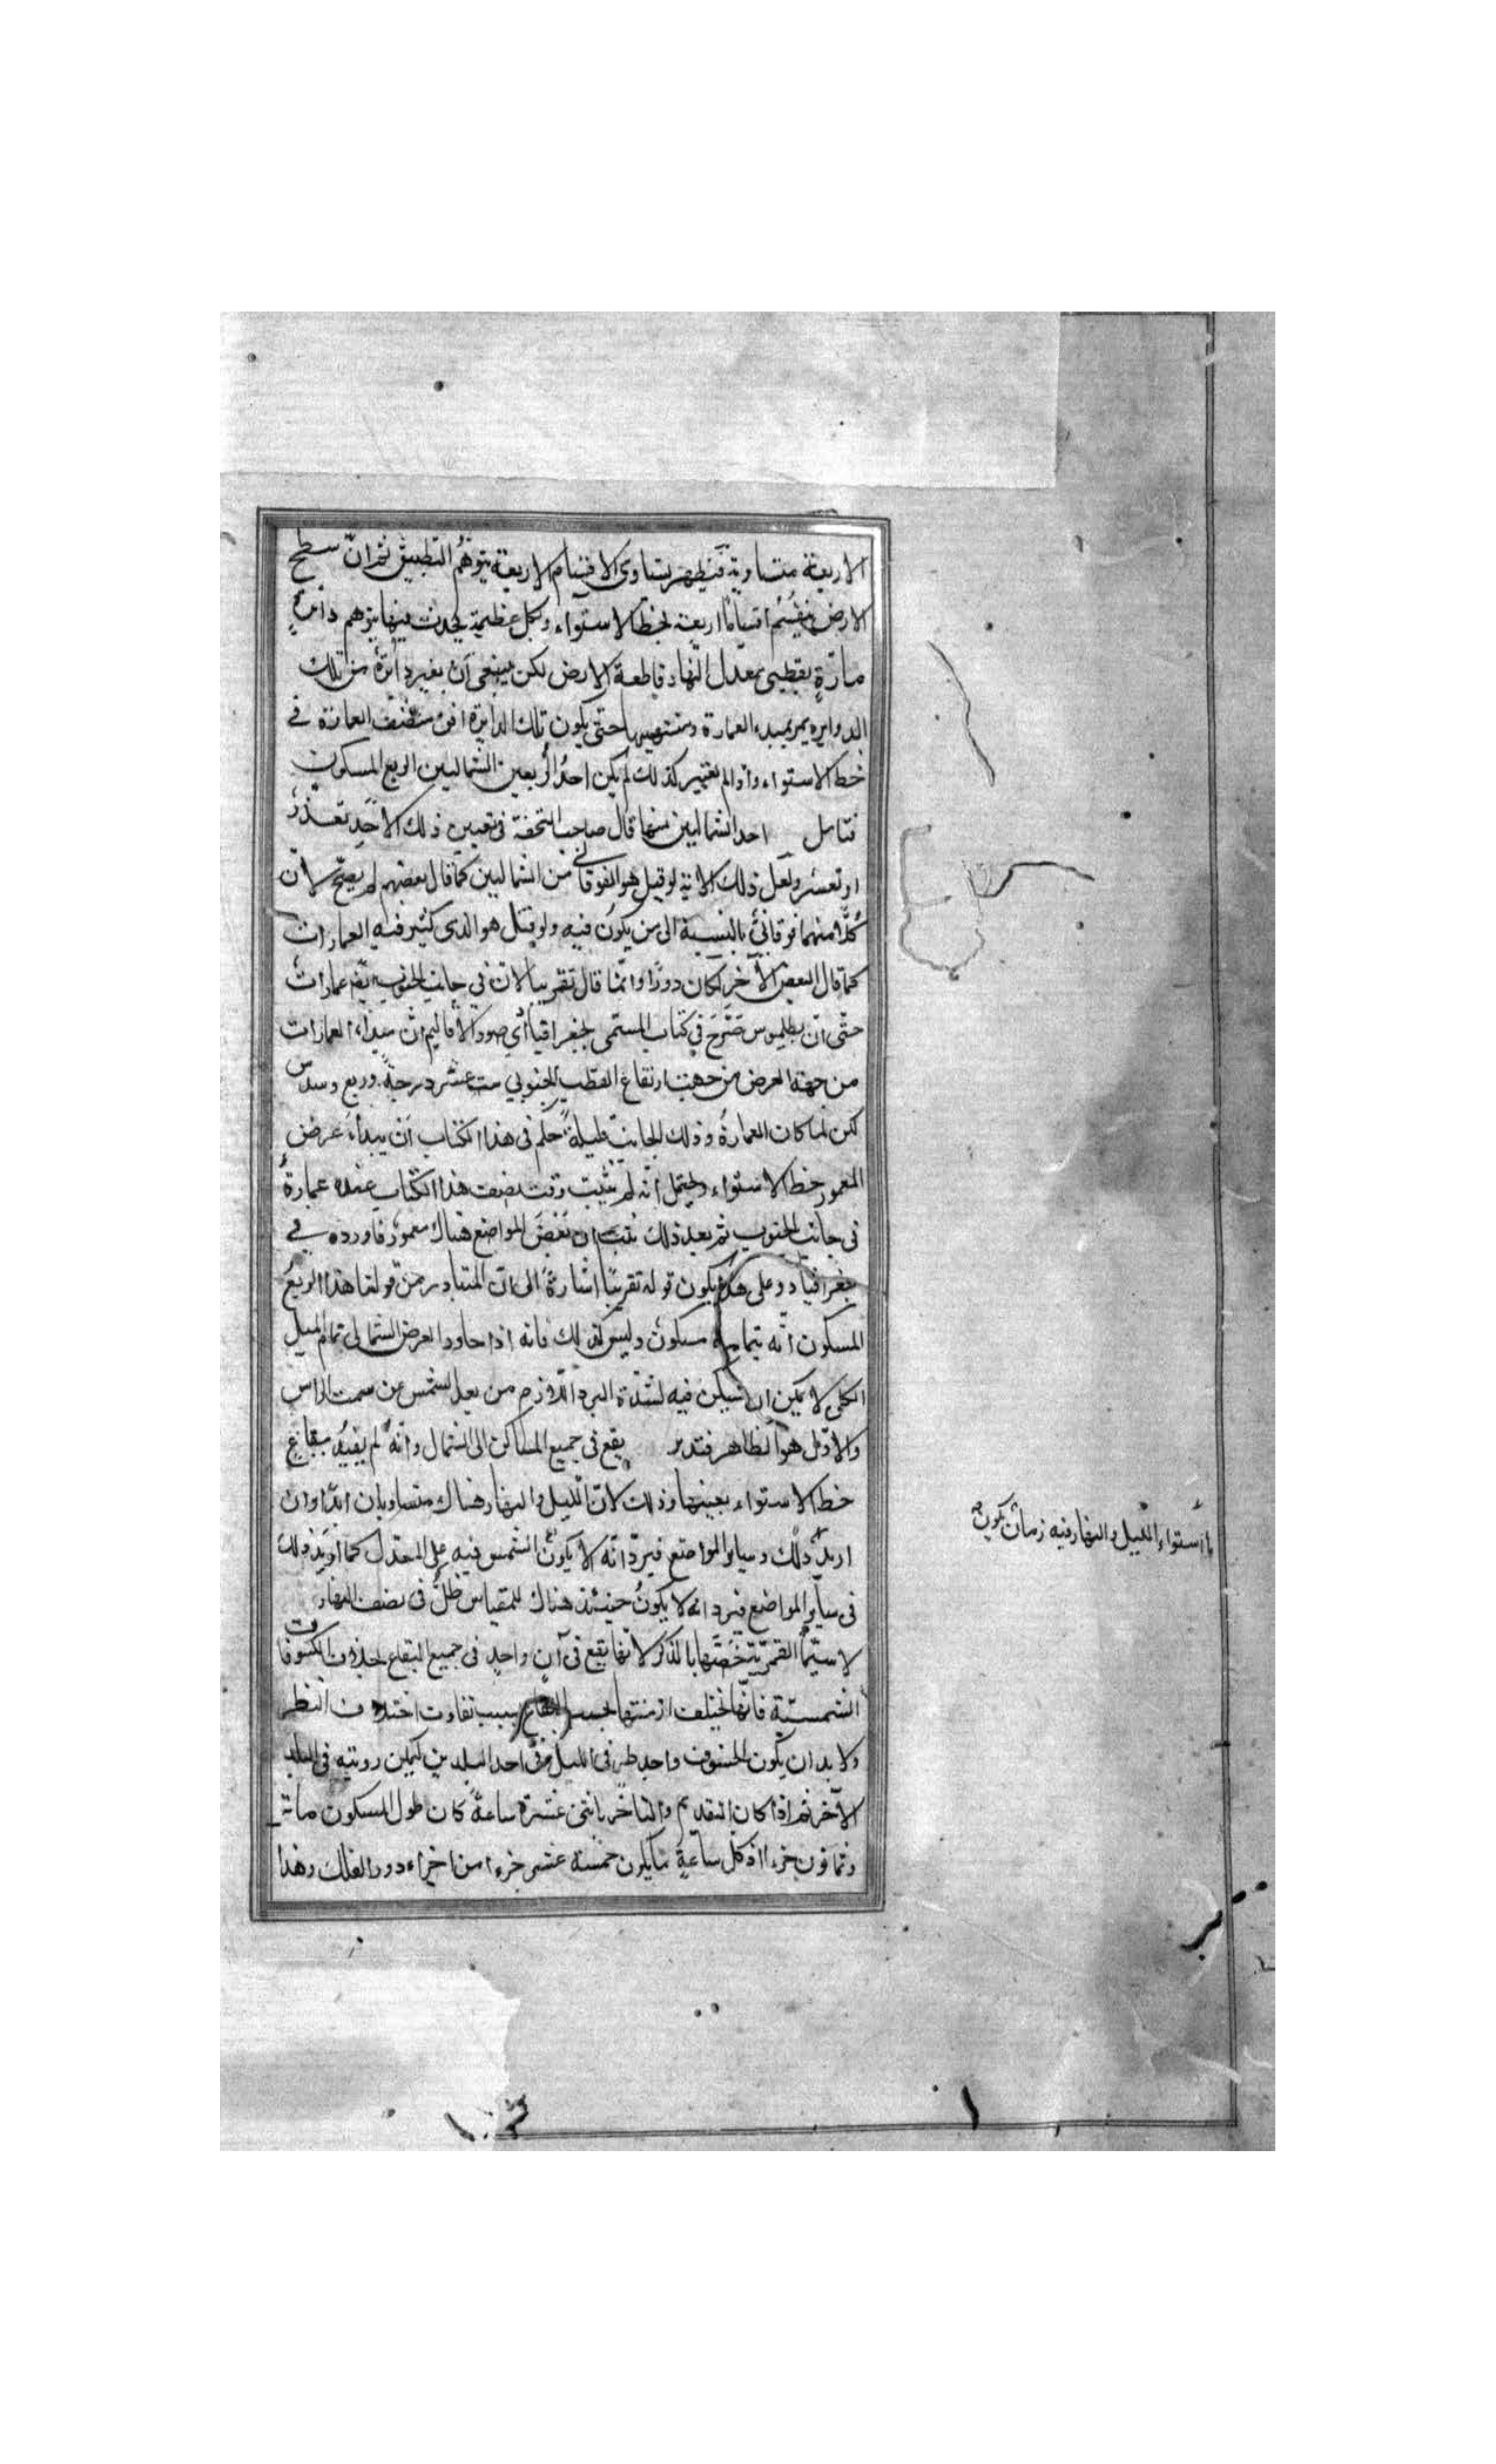 الاربعة متساوية فيظهر بتساوى الاقسام الاربعة بتوهم التطبيق ثم ان سطح
الارض ينقسم اقساما اربعة بخط الاستواء وبكل عظيمة يحدث فيها بتوهم دائرة
مارة بقطبى معدل النهار قاطعة الارض لكن ينبغى ان يعتبر دائرة من تلك
الدواير يمر بمبدء العمارة ومنتهيها حتى يكون تلك الدايرة افق منتصف العمارة فى
خط الاستواء واذا لم يعتبر كذلك لم يكن احد الربعين الشماليين الربع المسكون
فتامل احد الشماليين منها قال صاحب التحفة فى تعيين ذلك الاحد تعذر
او تعسر ولعل ذلك لانه لو قيل هو الفوقانى من الشماليين كما قال بعضهم لم يصح لان
كلا منهما فوقانى بالنسبة الى من يكون فيه ولو قيل هو الذى كثير فيه العمارات
كما قال البعض الآخر لكان دورا وانما قال تقريبا لان فى جانب الجنوب ايضا عمارات
حتى ان بطليموس صرح فى كتاب المسمى بجغرافيا اى صور الاقاليم ان مبداء العمارات
من جهة العرض من حيث ارتفاع القطب الجنوبى ست عشر درجة وربع وسدس
لكن لما كان العمارة فى ذلك الجانب قليلة حكم فى هذا الكتاب ان يبداء عرض
المعمور خط الاستواء ويحتمل انه لم يثبت وقت تصنيف هذا الكتاب عنده عمارة
فى جانب الجنوب ثم بعد ذلك ثبت ان بعض المواضع هناك معمور فاورده فى
جغرافيا وعلى هذا يكون قوله تقريبا اشارة الى ان المتبادر من قولنا هذا الربع
المسكون انه بتمامه مسكون وليس كذلك فانه اذا جاوز العرض الشمالى تمام الميل
الكلى لا يمكن ان يسكن فيه لشدة البرد اللازم من بعد الشمس عن سمت الراس
والاول هو الظاهر فتدبر يقع فى جميع المساكن الى الشمال وانه لم يقيد ببقاع
خط الاستواء بعينها وذلك لان الليل والنهار هناك متساويان ابدا وان
اريد ذلك وساير المواضع فيرد انه لا يكون الشمس فيه على المعدل كما اريد ذلك
فى ساير المواضع فيرد انه لا يكون حينئذ هناك للمقياس ظل فى نصف النهار
لا سيما القمرية خصها بالذكر لانها يقع فى آن واحد فى جميع البقاع بخلاف الكسوفات
الشمسية فانها يختلف ازمنتها بحسب البقاع بسبب تفاوت اختلاف النظر
ولا بد ان يكون الخسوف واحد طرفى الليل فى احد البلدين ليمكن رويته فى البلد
الآخر ثم اذا كان التقديم والتاخر باثنى عشرة ساعة كان طول المسكون مائة
وثمانون جزءا اذ كل ساعة يكون خمسة عشر جزءا من اجزاء دور الفلك وهذا
استواء الليل والنهار فيه زمان يكون